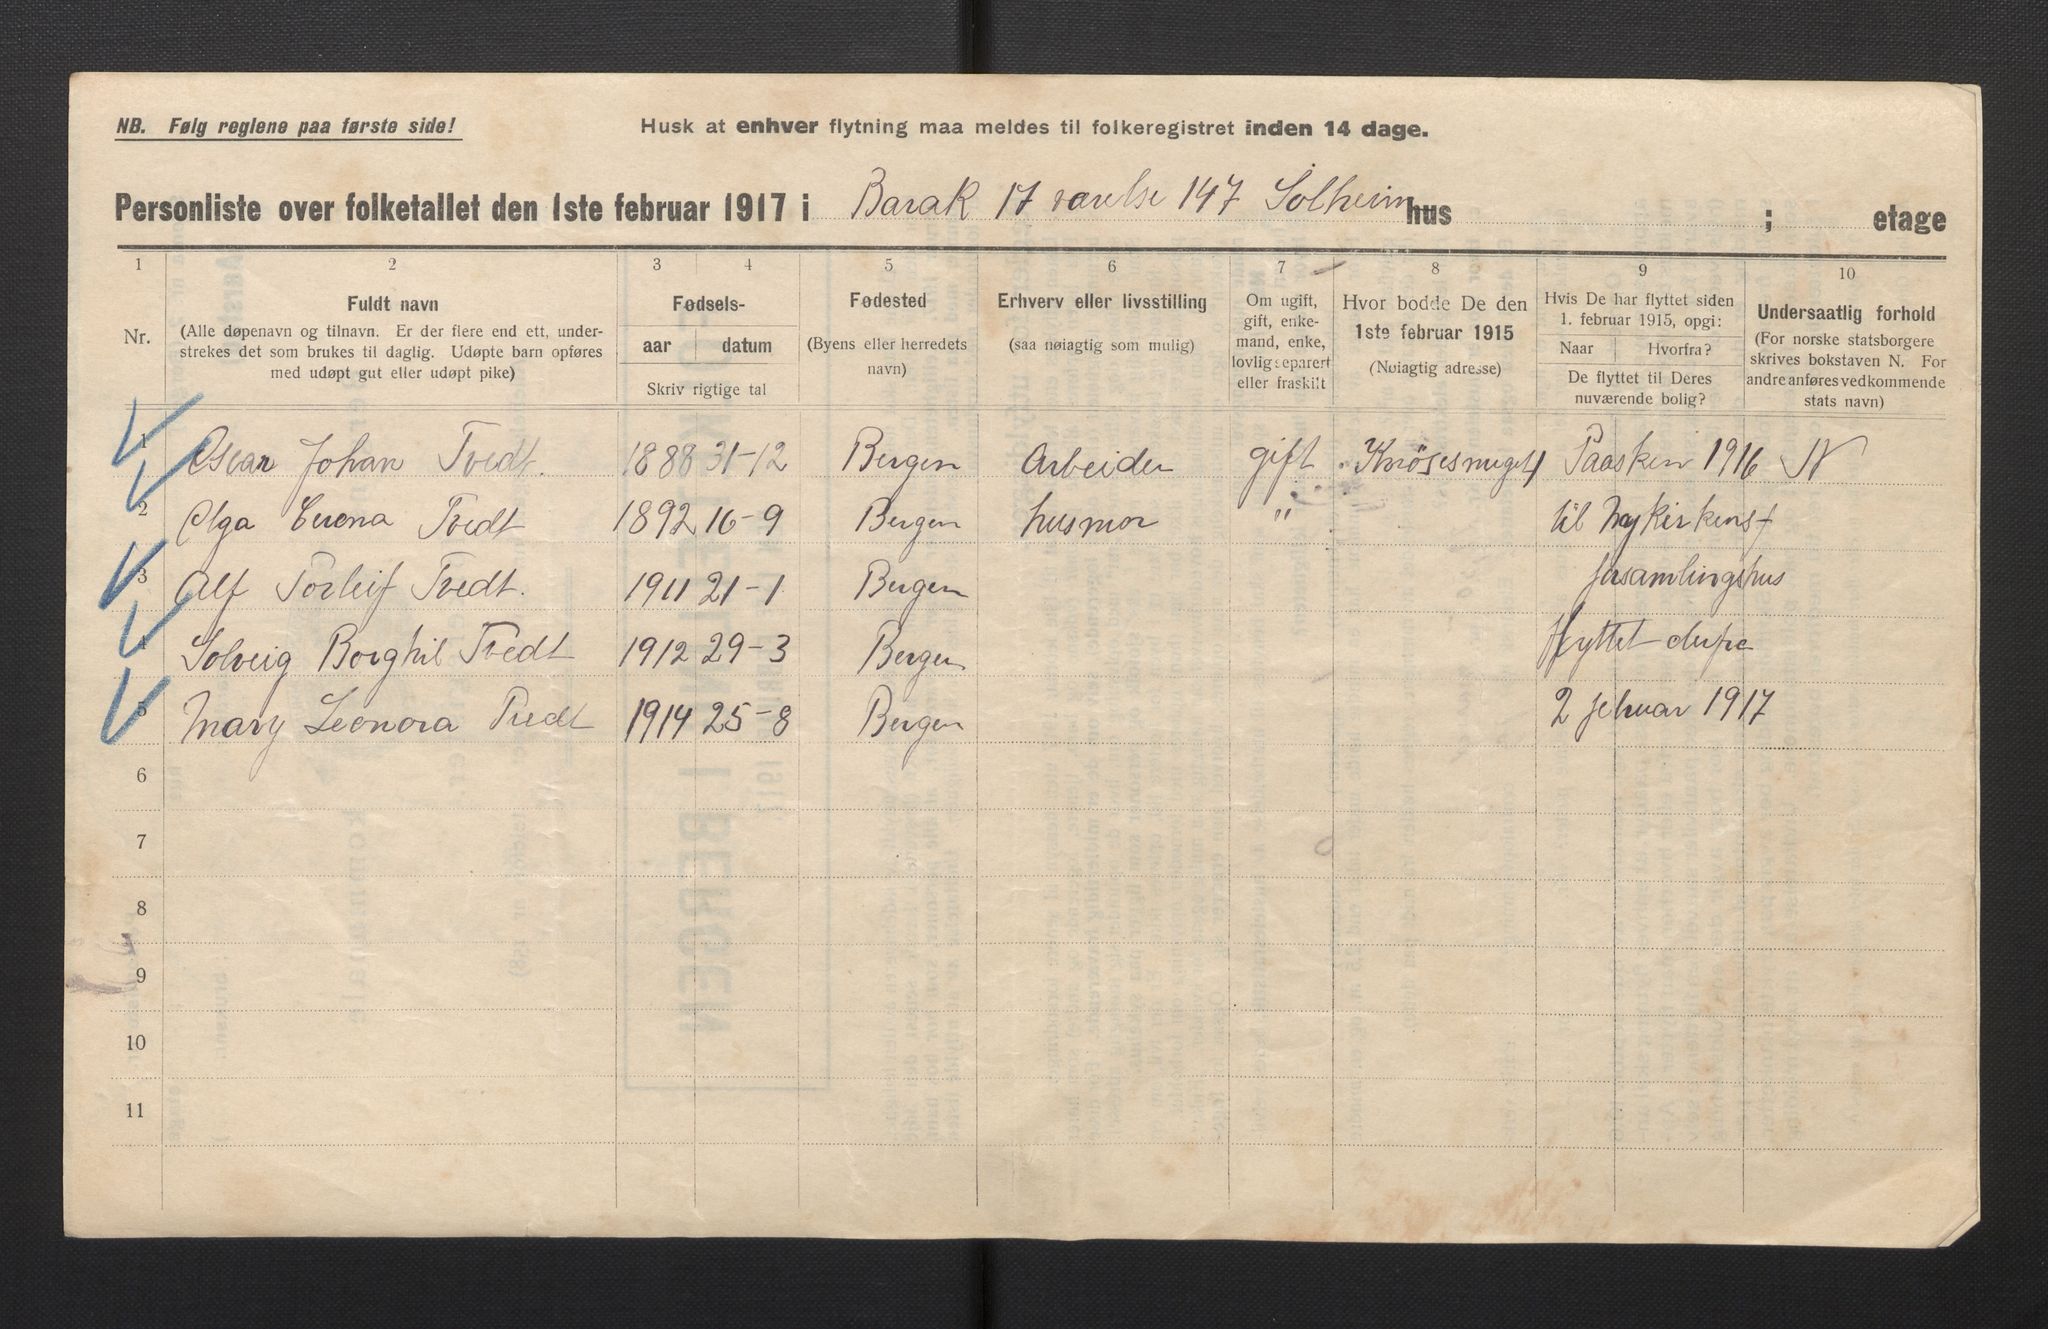 NB. Følg reglene paa første side!
Husk at enhver flytning maa meldes til folkeregistret inden 14 dage.
Personliste over folketallet den 1ste februar 1917 i Barak 17 værelse 147 Solheim hus ; etage
1 2 3 4 5 6 7 8 9 10
Nr.
Fuldt navn
(Alle døpenavn og tilnavn. Er der flere end ett, under-
strekes det som brukes til daglig. Udøpte barn opføres
med udøpt gut eller udøpt pike)
Fødsels-
aar datum
Skriv rigtige tal
Fødested
(Byens eller herredets
navn)
Erhverv eller livsstilling
(saa nøiagtig som mulig)
Om ugift,
gift, enke-
mand, enke,
lovlig separert
eller fraskilt
Hvor bodde De den
1ste februar 1915
(Nøiagtig adresse)
Hvis De har flyttet siden
1. februar 1915, opgi:
Naar Hvorfra?
De flyttet til Deres
nuværende bolig?
Undersaatlig forhold
(For norske statsborgere
skrives bokstaven N. For
andre anføres vedkommende
stats navn)
1 Oscar Johan Tvedt. 1888 31-12 Bergen Arbeider gift Knøsesmuget Paasken 1916 N
2 Olga Tvedt 1892 16-9 Bergen husmor " til Nykirkens
3 Alf Torleif Tvedt. 1911 21-1 Bergen forsamlingshus
4 Solveig Borghil Tvedt 1912 29-3 Bergen flyttet derfra
5 Mary Leonora Tvedt 1914 25-8 Bergen 2 februar 1917
6
7
8
9
10
11